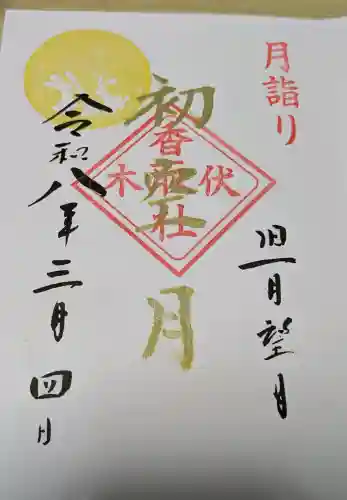 月詣り
旧一月望月
初望月
香
伏木
社
令和八年三月四日